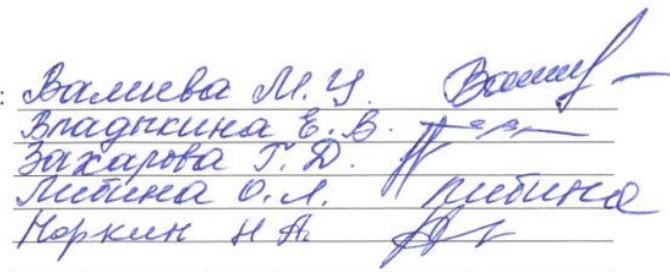 : Валиева М. Ц.
Владыкина Е. В.
Захарова Г. Д.
Либина О. Л. Либина
Норкин Н А.